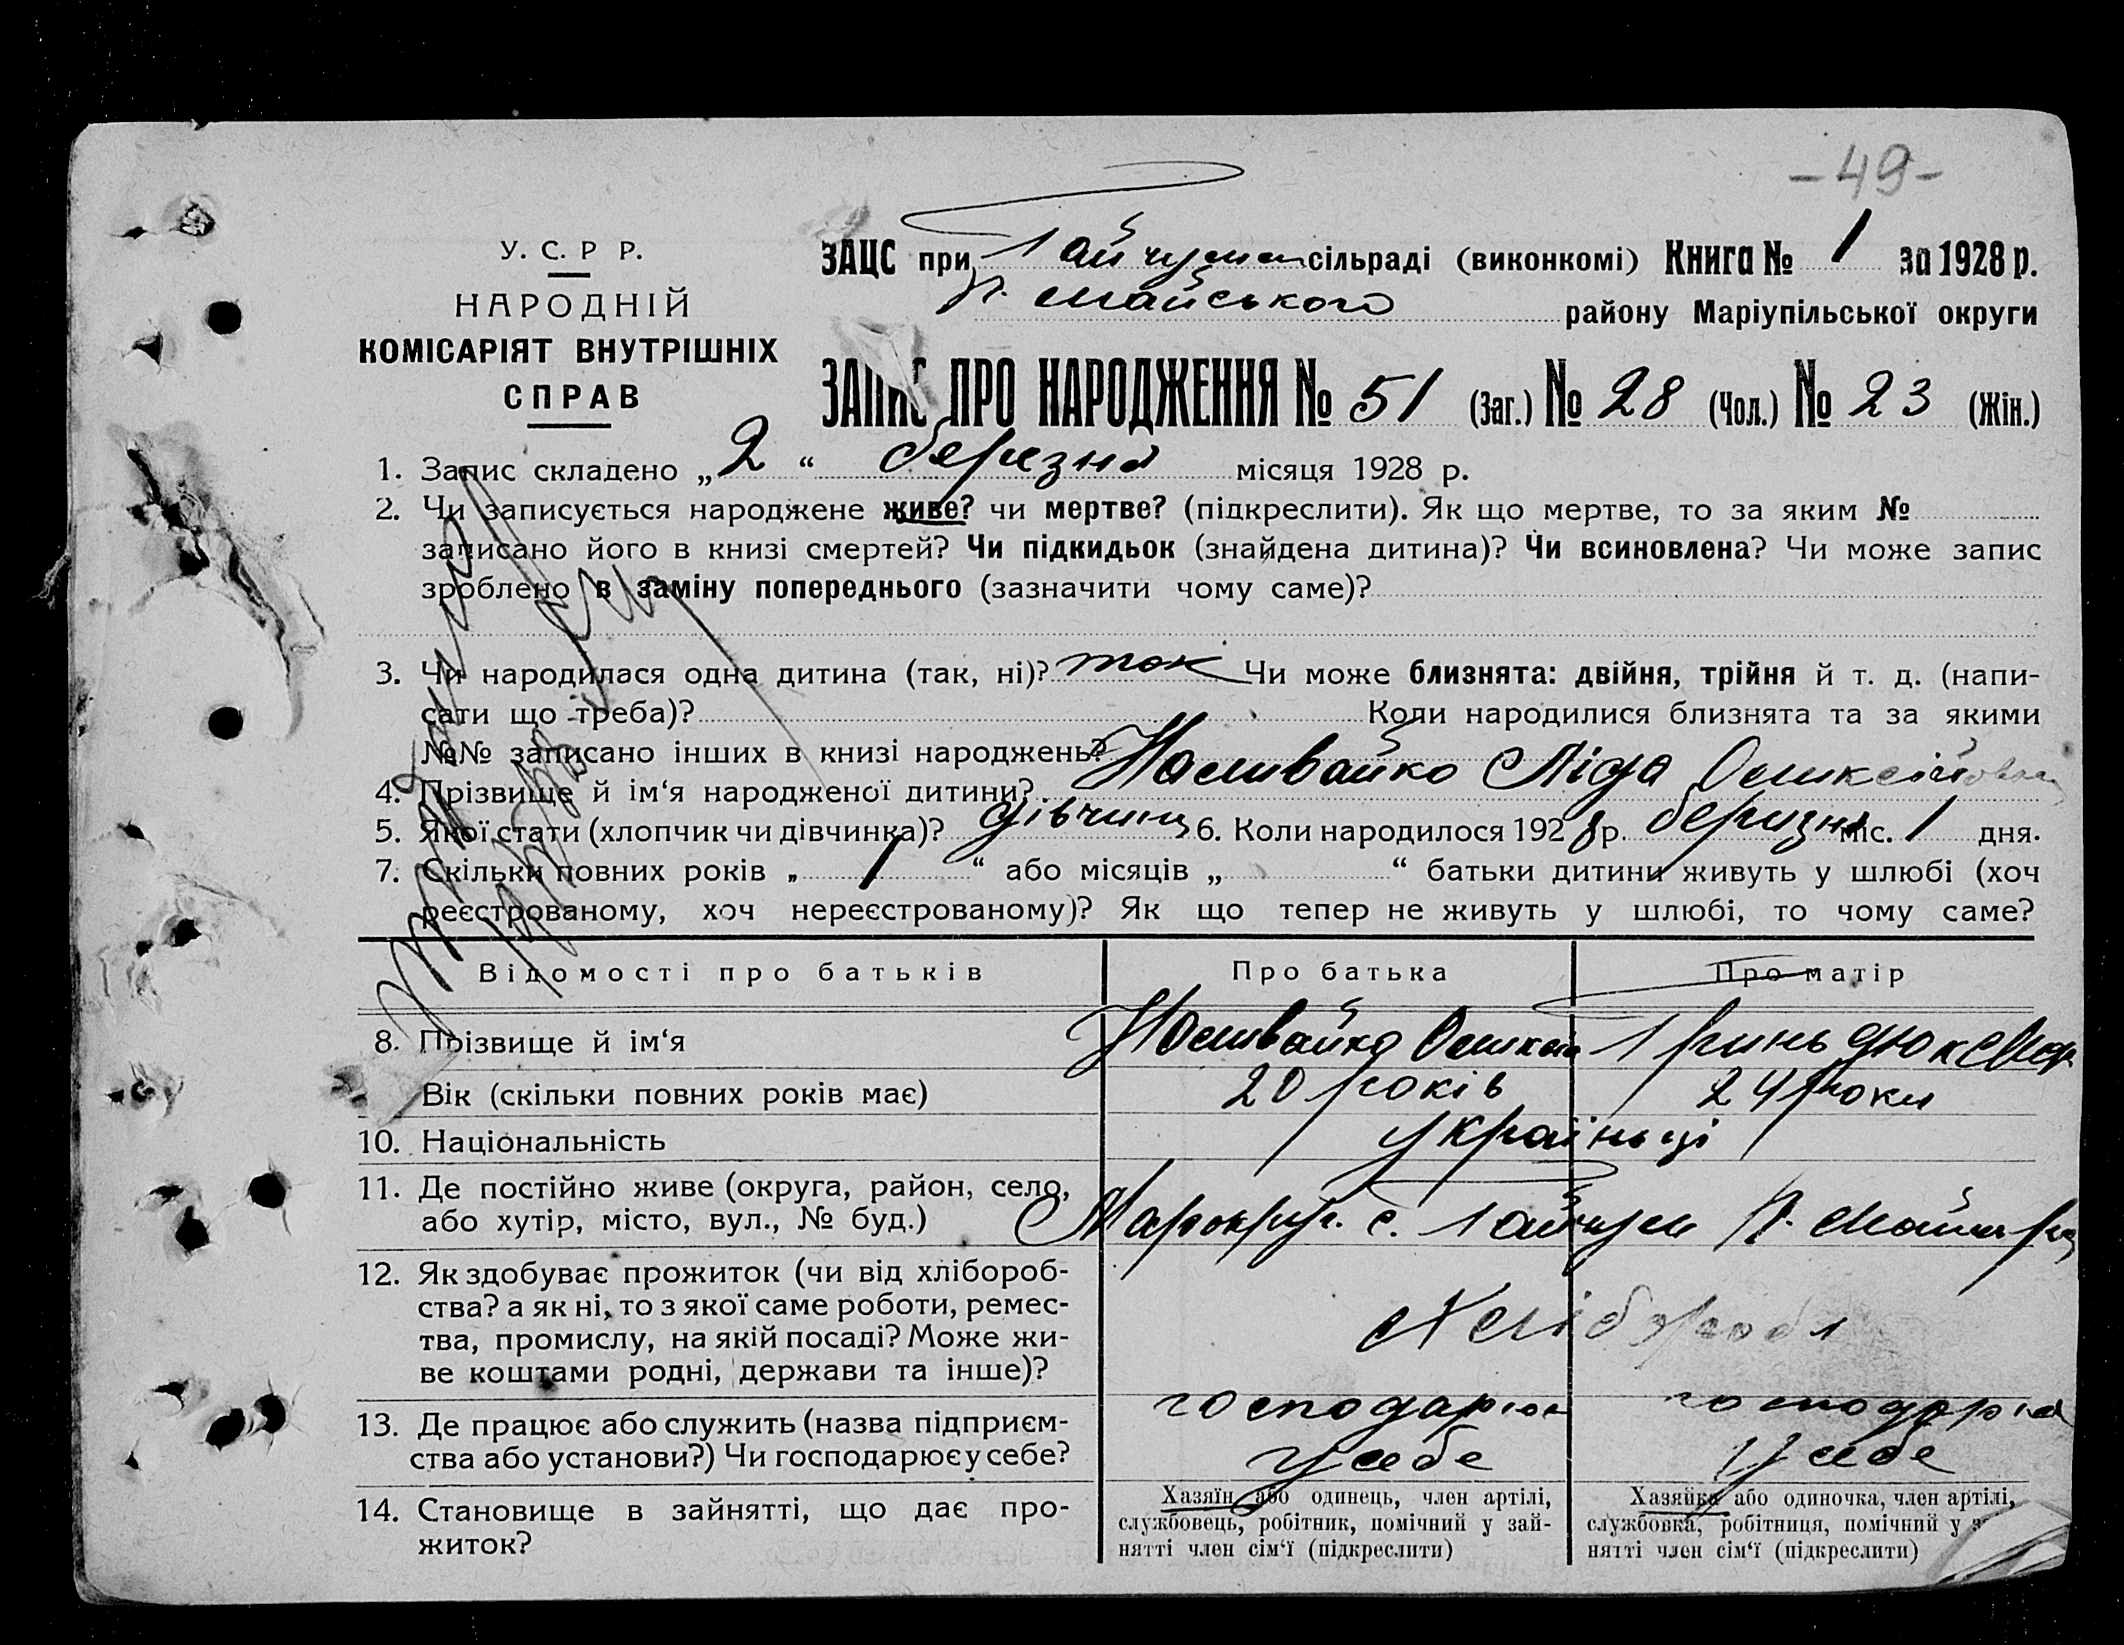 - 49 -
У. С. Р Р.
НАРОДНІЙ
КОМІСАРІЯТ ВНУТРІШНІХ
СПРАВ
ЗАЦС при Гайчула сільраді (виконкомі) Книга № 1 за 1928 р.
П. Майського району Маріупільської округи
ЗАПИС ПРО НАРОДЖЕННЯ № 51 (Заг.) № 28 (Чол.) № 23 (Жін.)
1. Запис складено „ 2 “ березня місяця 1928 р.
2. Чи записується народжене живе? чи мертве? (підкреслити). Як що мертве, то за яким №
записано його в книзі смертей? Чи підкидьок (знайдена дитина)? Чи всиновлена? Чи може запис
зроблено в заміну попереднього (зазначити чому саме)?
3. Чи народилася одна дитина (так, ні)? так Чи може близнята: двійня, трійня й т. д. (напи-
сати що треба)? Коли народилися близнята та за якими
№№ записано інших в книзі народжень?
4. Прізвище й ім‘я народженої дитини? Наливайко Ліда Оликсіювна
5. Якої стати (хлопчик чи дівчинка)? дівчина 6. Коли народилося 192 8 р. беризня міс. 1 дня.
7. Скільки повних років „ 1 “ або місяців „ “ батьки дитини живуть у шлюбі (хоч
реєстрованому, хоч нереєстрованому)? Як що тепер не живуть у шлюбі, то чому саме?
Відомості про батьків Про батька Про матір
8. Прізвище й ім‘я Наливайко Оликсій Гриньдюк Мар
Вік (скільки повних років має) 20 років 24 роки
10. Національність українці
11. Де постійно живе (округа, район, село,
або хутір, місто, вул., № буд.) Марокруг. с. Гайчул П. Майська
12. Як здобуває прожиток (чи від хлібороб-
ства? а як ні, то з якої саме роботи, ремес-
тва, промислу, на якій посаді? Може жи-
ве коштами родні, держави та інше)?
Хлібороби
13. Де працює або служить (назва підприєм-
ства або установи?) Чи господарює у себе?
господарює у себе
господарює у себе
14. Становище в зайнятті, що дає про-
житок?
Хазяїн або одинець, член артілі,
службовець, робітник, помічний у зай-
нятті член сім‘ї (підкреслити)
Хазяйка або одиночка, член артілі,
службовка, робітниця, помічний у з
нятті член сім‘ї (підкреслити)